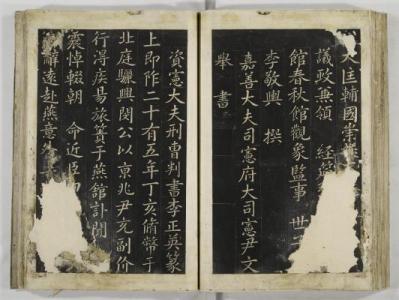 大匡輔國崇祿
議政兼領 經筵
館春秋館觀象監事 世
李敬輿 撰
嘉善大夫司憲府大司憲尹文
舉 書
資憲大夫刑曹判書李正英篆
上即阼二十有五年丁亥脩幣于
北庭驪興閔公以京兆尹充副价
行淂疾昜旅簀于燕館訃聞
震悼輟朝 命近臣
辭遠赴燕意